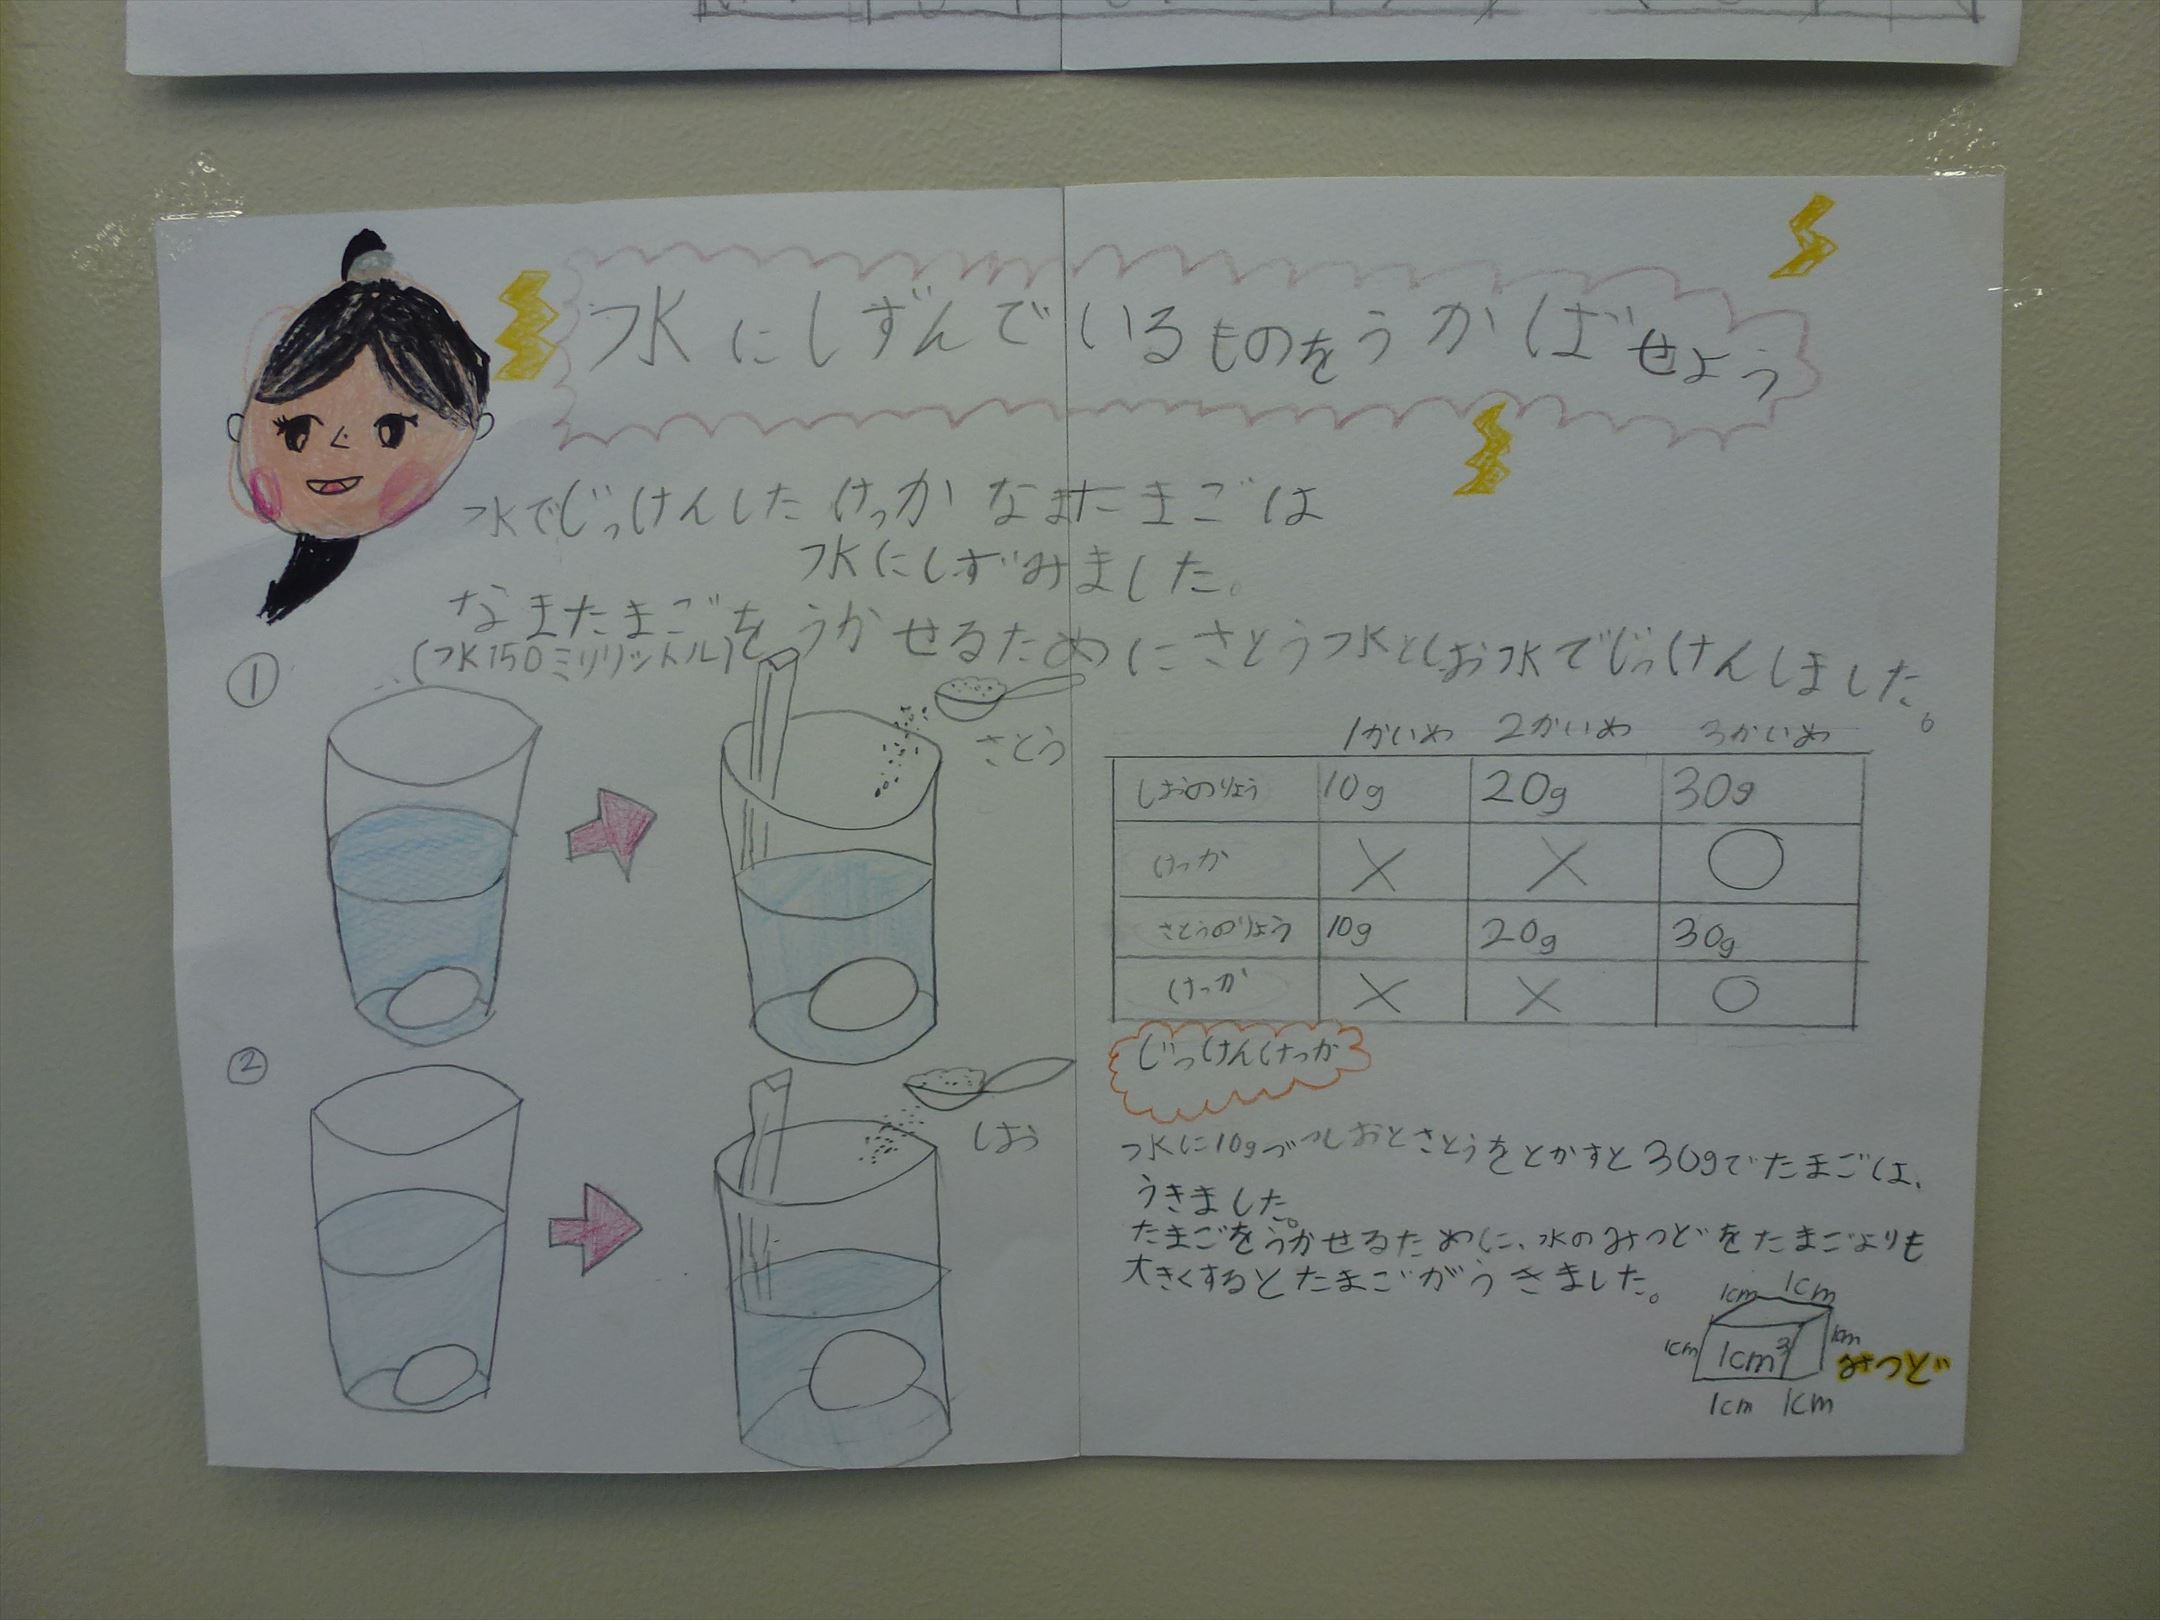 水にしずんでいるものをうかばせよう
水でじっけんしたけっか なまたまごは
水にしずみました。
なまたまごをうかせるためにさとう水としお水でじっけんしました。
① (水150ミリリットル)
さとう
1かいめ 2かいめ 3かいめ
しおのりょう 10g 20g 30g
けっか × × ○
さとうのりょう 10g 20g 30g
けっか × × ○
②
しお
じっけんけっか
水に10gづつしおとさとうをとかすと30gでたまごは、
うきました。
たまごをうかせるために、水のみつどをたまごよりも
大きくするとたまごがうきました。
1cm 1cm
1cm 1cm³ 1cm みつど
1cm 1cm